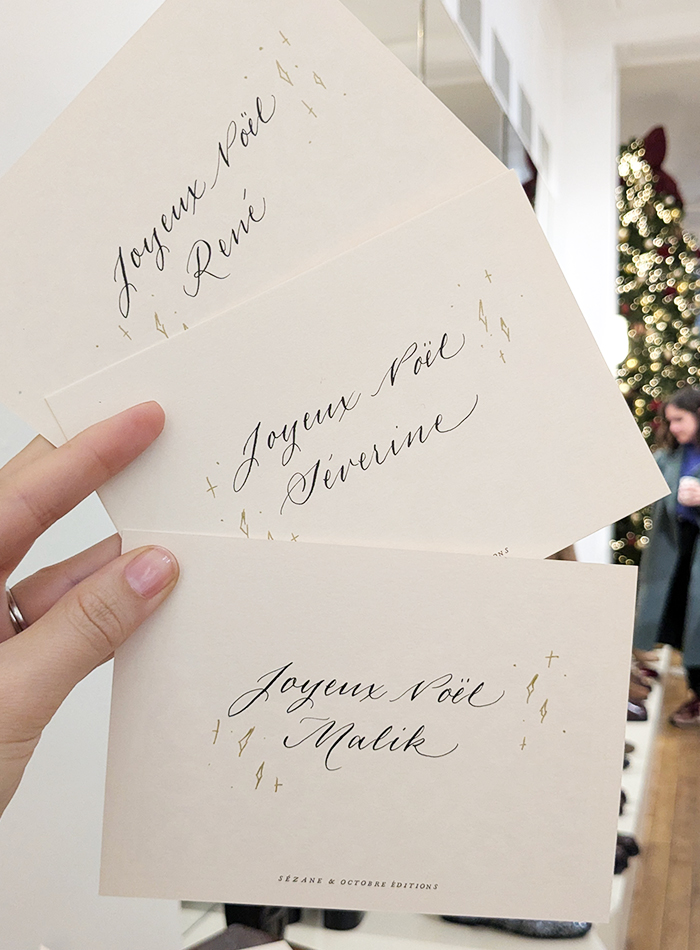 Joyeux Noël
René
Joyeux Noël
Séverine
NS
Joyeux Noël
Malik
SÉZANE & OCTOBRE ÉDITIONS